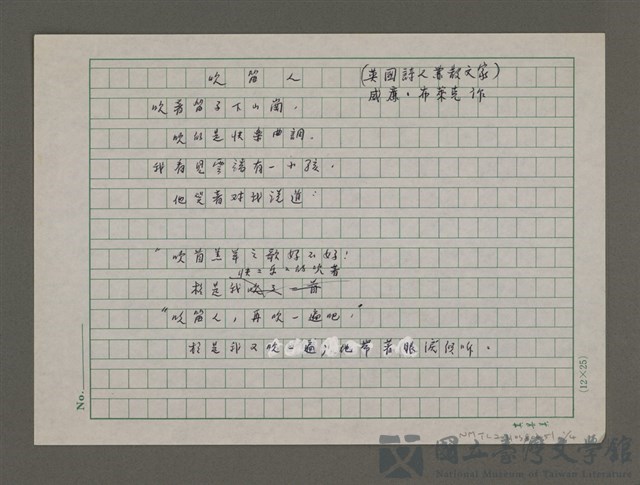 吹笛人
(英國詩人兼散文家)
威廉·布萊克作
吹著笛子下山崗,
吹的是快樂曲調.
我看見雲端有一小孩,
他笑著对我說道:
"吹首羔羊之歌好不好!
快快乐乐的吹著
於是我吹了一首
"吹笛人,再吹一遍吧."
於是我又吹一遍,他帶著眼淚傾听.
No.
(12×25)
國立臺灣文學館
National Museum of Taiwan Literature